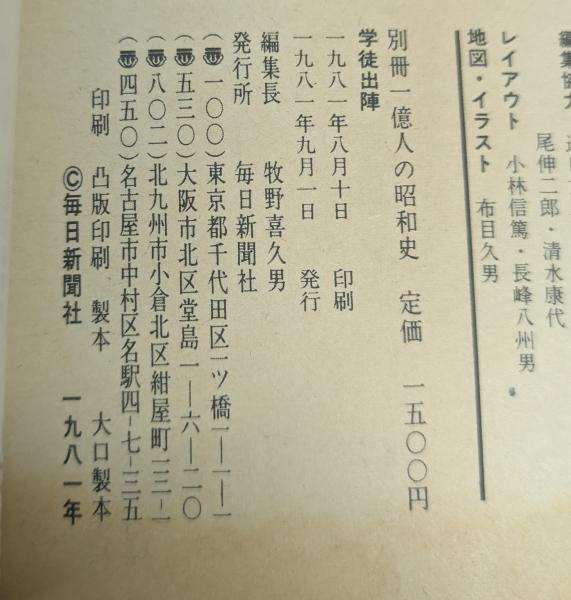 編集協力
尾伸二郎・清水康代
レイアウト 小林信篤・長峰八州男
地図・イラスト 布目久男
別冊一億人の昭和史 定価 一五〇〇円
学徒出陣
一九八一年八月十日 印刷
一九八一年九月一日 発行
編集長 牧野喜久男
発行所 毎日新聞社
(〠一〇〇)東京都千代田区一ツ橋一―一―一
(〠五三〇)大阪市北区堂島一―六―二〇
(〠八〇二)北九州市小倉北区紺屋町一三―一
(〠四五〇)名古屋市中村区名駅四―七―三五
印刷 凸版印刷 製本 大口製本
©毎日新聞社 一九八一年